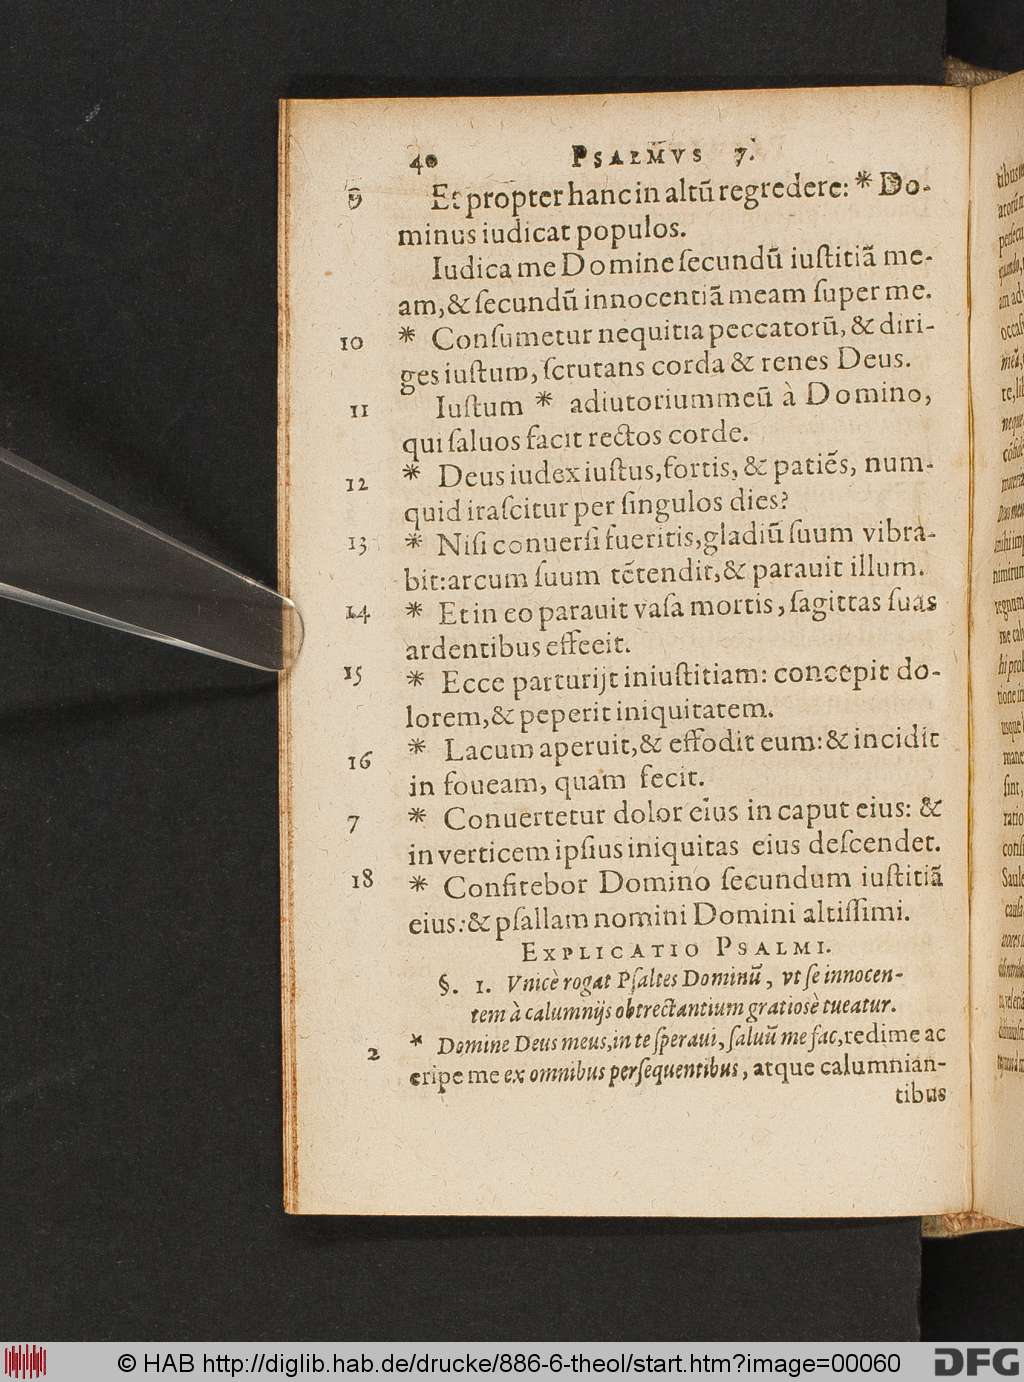 40 PSALMVS 7.
9 Et propter hanc in altū regredere: * Do-
minus iudicat populos.
Iudica me Domine ſecundū iuſtitiā me-
am, & ſecundū innocentiā meam ſuper me.
10 * Conſumetur nequitia peccatorū, & diri-
ges iuſtum, ſcrutans corda & renes Deus.
11 Iuſtum * adiutorium meū à Domino,
qui ſaluos facit rectos corde.
12 * Deus iudex iuſtus, fortis, & patiēs, num-
quid iraſcitur per ſingulos dies?
13 * Niſi conuerſi fueritis, gladiū ſuum vibra-
bit: arcum ſuum tētendit, & parauit illum.
14 * Et in eo parauit vaſa mortis, ſagittas ſuas
ardentibus effecit.
15 * Ecce parturijt iniuſtitiam: concepit do-
lorem, & peperit iniquitatem.
16 * Lacum aperuit, & effodit eum: & incidit
in foueam, quam fecit.
7 * Conuertetur dolor eius in caput eius: &
in verticem ipſius iniquitas eius deſcendet.
18 * Confitebor Domino ſecundum iuſtitiā
eius: & pſallam nomini Domini altiſſimi.
EXPLICATIO PSALMI.
§. 1. Vnicè rogat Pſaltes Dominū, vt ſe innocen-
tem à calumnijs obtrectantium gratiosè tueatur.
2 * Domine Deus meus, in te ſperaui, ſaluū me fac, redime ac
eripe me ex omnibus perſequentibus, atque calumnian-
tibus
© HAB http://diglib.hab.de/drucke/886-6-theol/start.htm?image=00060
DFG